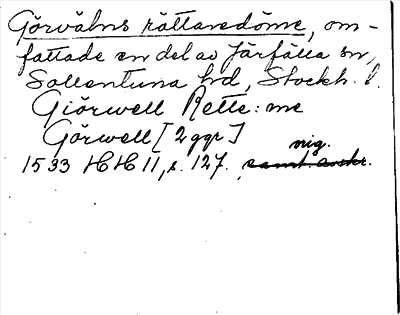 Görvälns rättaredöme, om-
fattade en del av Järfälla sn,
Sollentuna hd, Stockh. l.
Giörwell Rette: me
Görwell [2 ggr]
orig.
1533 HH 11, s. 127. samt. avskr.